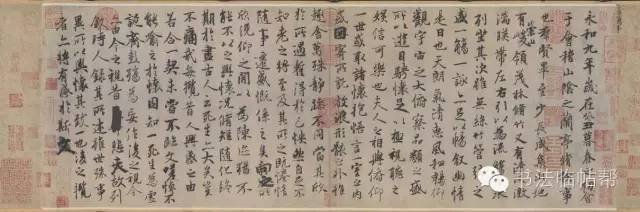 永和九年歲在癸丑暮春之初會
于會稽山陰之蘭亭脩稧事
也羣賢畢至少長咸集此地
有崇山峻領茂林脩竹又有清流激
湍暎帶左右引以為流觴曲水
列坐其次雖無絲竹管弦之
盛一觴一詠亦足以暢敘幽情
是日也天朗氣清惠風和暢仰
觀宇宙之大俯察品類之盛
所以遊目騁懷足以極視聽之
娛信可樂也夫人之相與俯仰
一世或取諸懷抱悟言一室之內
或因寄所託放浪形骸之外雖
趣舍萬殊靜躁不同當其欣
於所遇暫得於己怏然自足不
知老之將至及其所之既惓情
隨事遷感慨係之矣向之所
欣俛仰之閒以為陳迹猶不
能不以之興懷況脩短隨化終
期於盡古人云死生亦大矣豈
不痛哉每攬昔人興感之由
若合一契未嘗不臨文嗟悼不
能喻之於懷固知一死生為虛
誕齊彭殤為妄作後之視今
亦由今之視昔悲夫故列
敘時人錄其所述雖世殊事
異所以興懷其致一也後之攬
者亦將有感於斯文
书法临帖帮